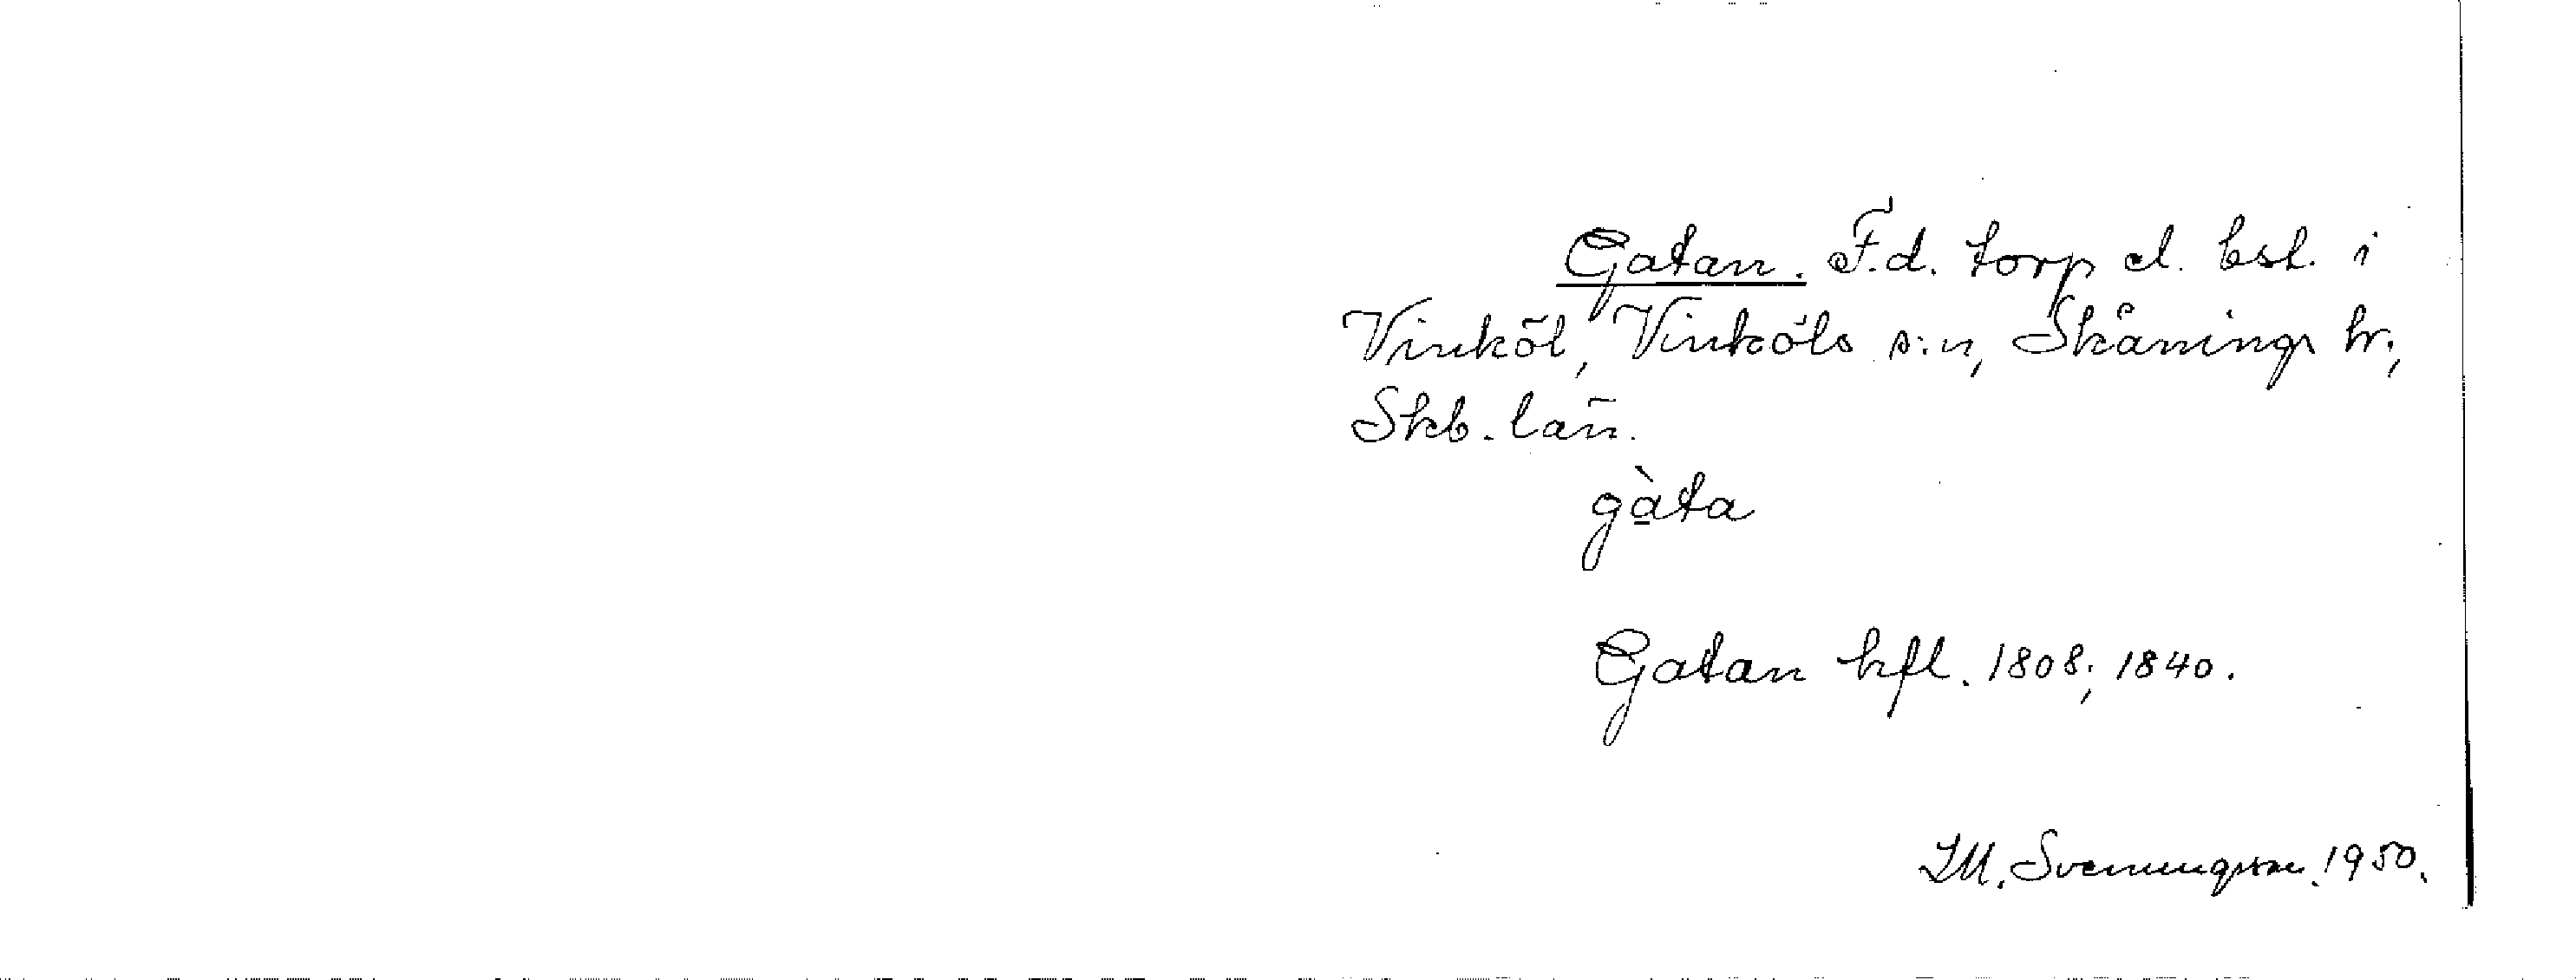 Gatan. F.d. torp el. bsl. i
Vinköl, Vinköls s:n, Skånings hr,
Skb. län.
gàta
Gatan hfl. 1808; 1840.
M. Sveningsson. 1950.